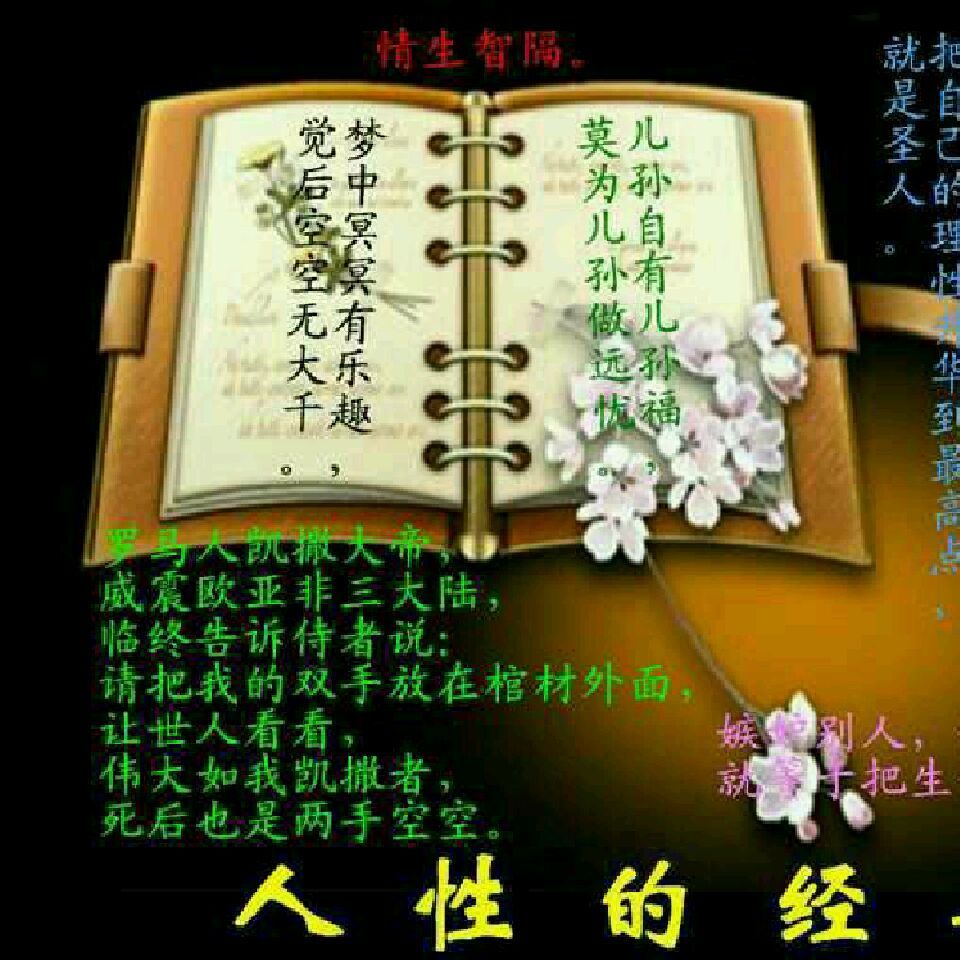 情生智隔。
把自己的理性升华到最高点，
就是圣人。
儿孙自有儿孙福，
莫为儿孙做远忧。
梦中冥冥有乐趣，
觉后空空无大千。
罗马人凯撒大帝，
威震欧亚非三大陆，
临终告诉侍者说：
请把我的双手放在棺材外面，
让世人看看，
伟大如我凯撒者，
死后也是两手空空。
嫉妒别人，
就等于把生
人性的经